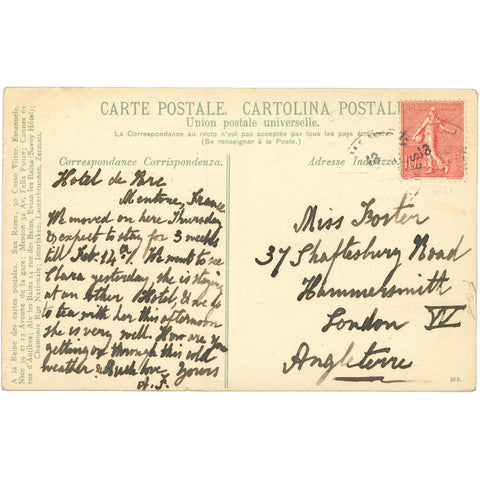 CARTE POSTALE. CARTOLINA POSTALE
Union postale universelle.
La Correspondance au recto n'est pas acceptée par tous les pays
(Se renseigner à la Poste.)
Correspondance Corrispondenza.
Adresse Indirizzo.
Hotel de Parc
Mentone, France
We moved on here Thursday
& expect to stay for 3 weeks
till Feb. 14th. We went to see
Clara yesterday, she is staying
at an other Hotel, & we go
to tea with her this afternoon
she is very well. How are you
getting on through this cold
weather? Much love, Yours
A. F.
Miss Foster
37 Shaftesbury Road
Hammersmith
London W
Angleterre
A la Reine des cartes postales. San Remo, 30 Corso Vittor. Emanuele.
Nice 29 et 13 Avenue de la gare; Menton 32 Av. Felix Faure; Cannes 61
rue d'Antibes; Aix les Bains 14 rue des Bains, Evian les Bains (Savoy Hôtel);
Chamonix Rue Nationale; Interlaken, Lauterbrunnen, Zermatt.